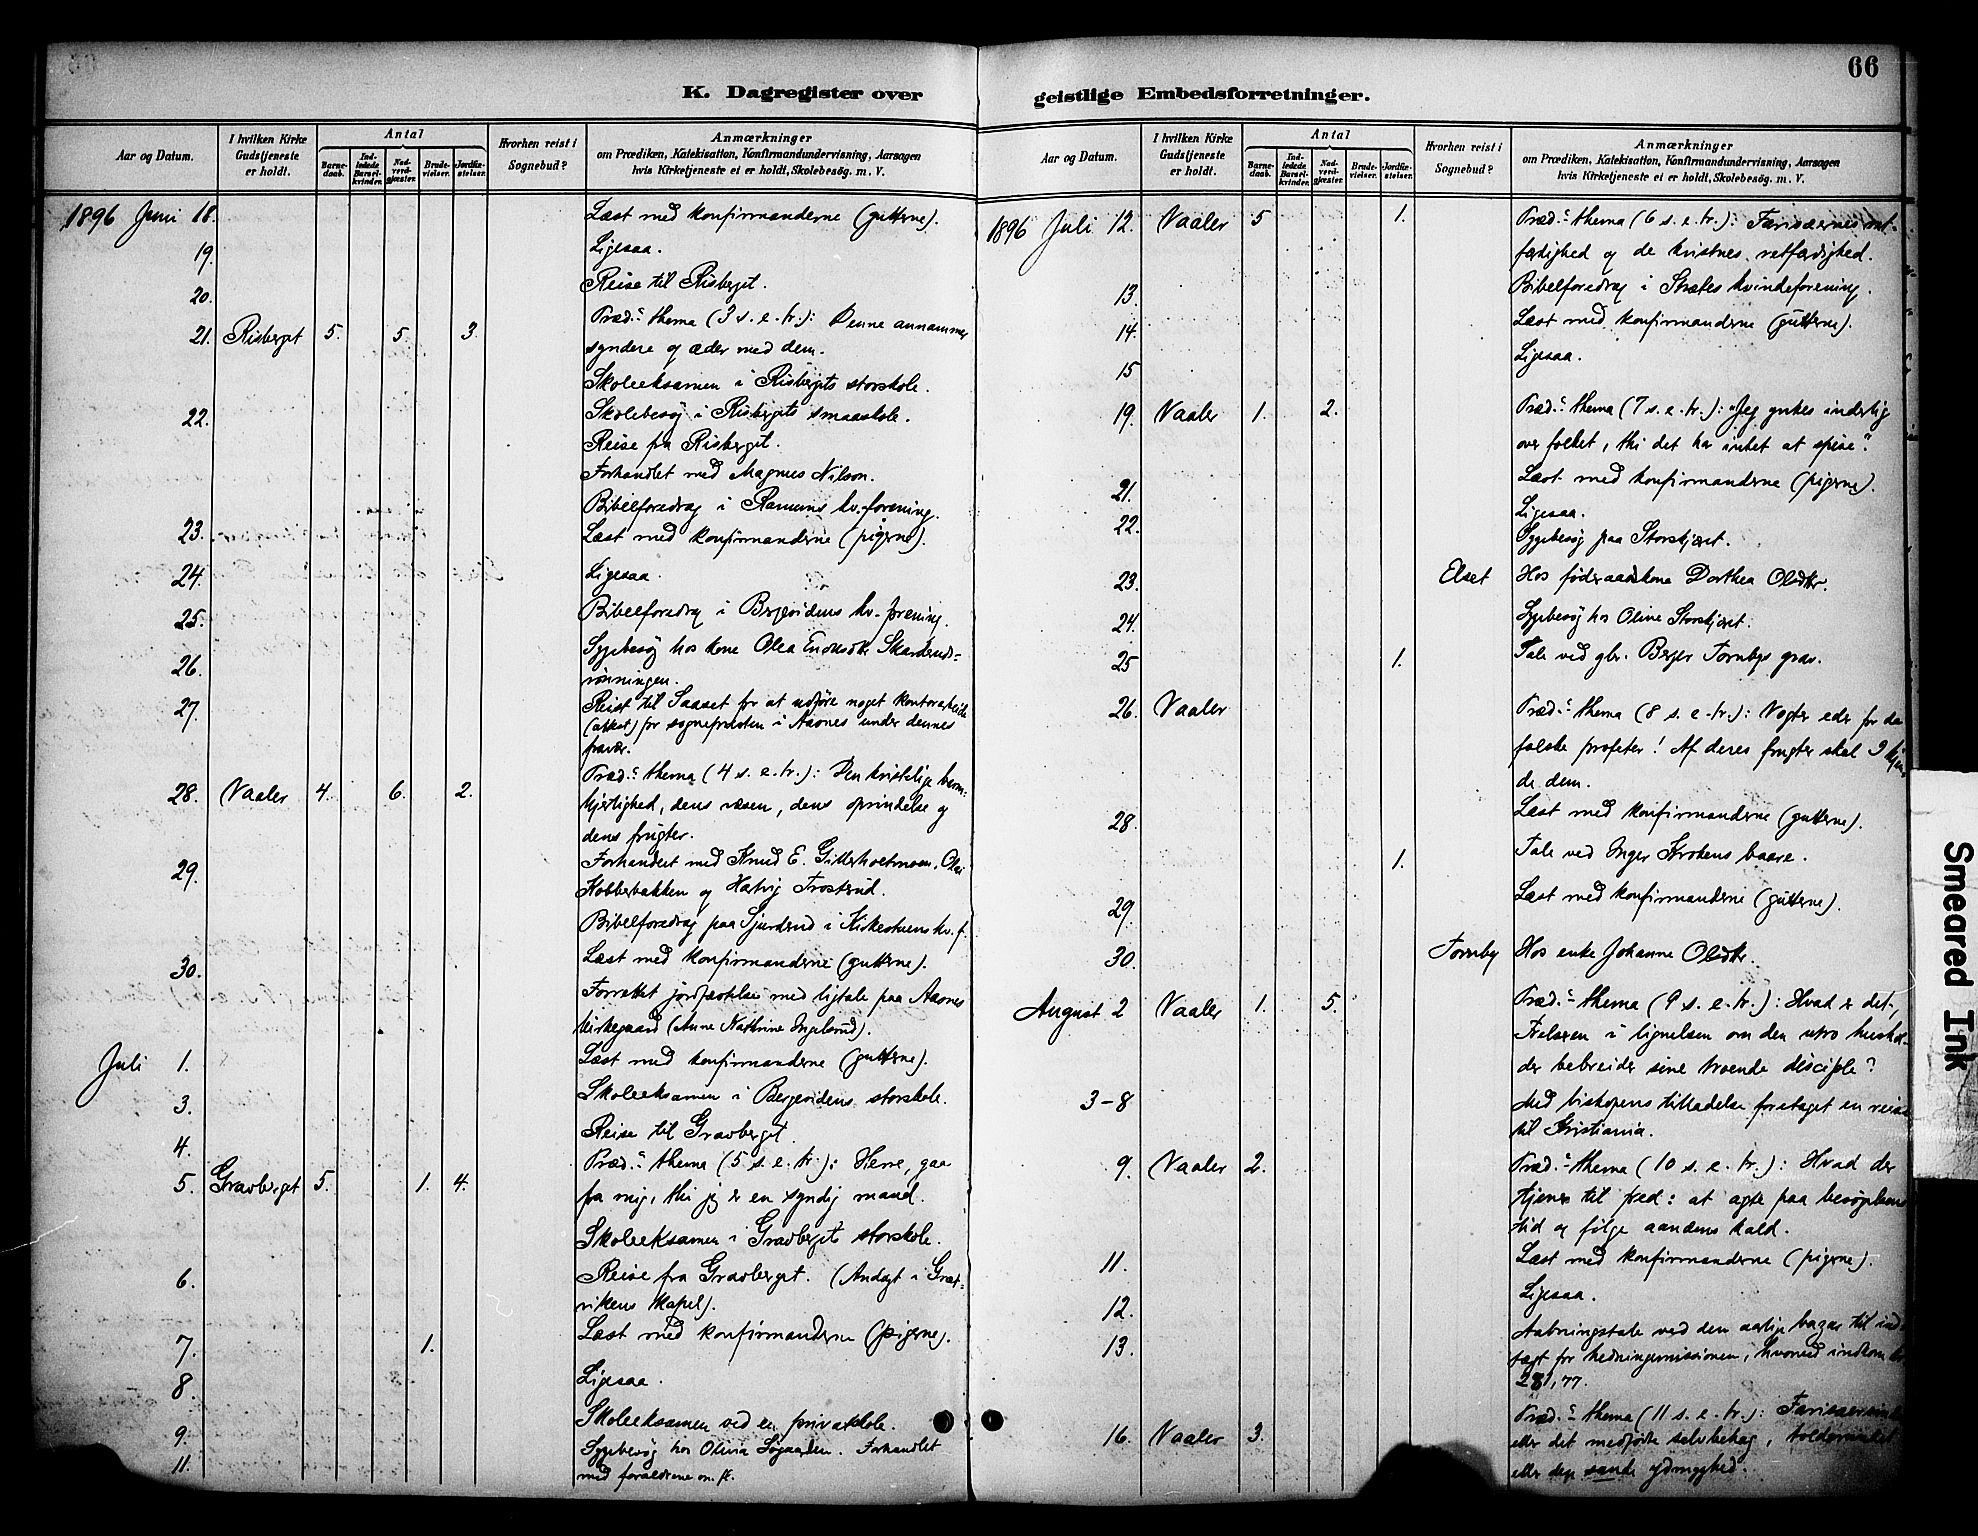 66
K. Dagregister over
Aar og Datum.
I hvilken Kirke Gudstjeneste er holdt.
Antal
Barnedaab.
Indledede Barselkvinder.
Nadverdgjæster.
Brudevielser.
Jordfæstelser.
Hvorhen reist i Sognebud?
Anmærkninger
om Prædiken, Katekisation, Konfirmandundervisning, Aarsagen
hvis Kirketjeneste ei er holdt, Skolebesøg. m. V.
1896 Juni 18. Læst med konfirmanderne (gutterne).
19. Ligesaa.
20. Reise til Risberget.
21. Risberget 5. 5. 3. Præd.s thema (3 s. e. tr.): Denne annammer
syndere og æder med dem.
Skoleeksamen i Risbergets storskole.
22. Skolebesøg i Risbergets smaaskole.
Reise fra Risberget.
Forhandlet med Magnus Nilson.
Bibelforedrag i Ramuns kv.forening.
23. Læst med konfirmanderne (pigerne).
24. Ligesaa.
25. Bibelforedrag i Bergeidens kv. forening.
26. Sygebesøg hos kone Olea
rønningen.
27. Reist til Saaset for at udføre noget kontorarbeide
(attest) for sognepræsten i Aasnes under dennes
fravær.
28. Vaaler 4. 6. 2. Præd.s thema (4 s. e. tr.): Den kristelige barm-
hjertighed, dens væsen, dens oprindelse og
dens frugter.
29. Forhandlet med Knud E.
Kobberbakken og
Bibelforedrag paa Sjurderud i Kirkestuens kv. f.
30. Læst med konfirmanderne (gutterne).
Forrettet jordfæstelse med ligtale paa Aasnes
kirkegaard (Anne Kathrine
Juli 1. Læst med konfirmanderne (gutterne).
3. Skoleeksamen i Bergeidens storskole.
4. Reise til Gravberget.
5. Gravberget 5. 1. 4. Præd.s thema (5 s. e. tr.): Herre, gaa
fra mig, thi jeg er en syndig mand.
Skoleeksamen i Gravbergets storskole.
6. Reise fra Gravberget. (Andagt i Græs-
vikens kapel).
7. 1. Læst med konfirmanderne (pigerne).
8. Ligesaa.
9. Skoleeksamen ved en privatskole.
11. Sygebesøg hos Olivia Søgaarden. Forhandlet
med forældrene om fl.
geistlige Embedsforretninger.
Aar og Datum.
I hvilken Kirke Gudstjeneste er holdt.
Antal
Barnedaab.
Indledede Barselkvinder.
Nadverdgjæster.
Brudevielser.
Jordfæstelser.
Hvorhen reist i Sognebud?
Anmærkninger
om Prædiken, Katekisation, Konfirmandundervisning, Aarsagen
hvis Kirketjeneste ei er holdt, Skolebesøg. m. V.
1896 Juli 12. Vaaler 5 1. Præd.s thema (6 s. e. tr.): Farisæernes ret-
færdighed og de kristnes retfærdighed.
13. Bibelforedrag i Skætes kvindeforening.
14. Læst med konfirmanderne (gutterne).
15 Ligesaa.
19. Vaaler 1. 2. Præd.s thema (7 s. e. tr.): "Jeg ynkes inderlig
over folket, thi det har intet at spise".
21. Læst med konfirmanderne (pigerne).
22. Ligesaa.
Sygebesøg paa Storskjæret.
23. Elset Hos føderaadskone Dorthea Olsdtr.
24. Sygebesøg hos Oline Storskjæret.
25 1. Tale ved gbr. Berger Tornbys grav.
26. Vaaler Præd.s thema (8 s. e. tr.): Vogter eder for de
falske profeter! Af deres frugter skal I kjen-
de dem.
28. Læst med konfirmanderne (gutterne).
1. Tale ved Inger Krokens baare.
29. Læst med konfirmanderne (gutterne).
30. Tornby Hos enke Johanne Olsdtr.
August 2 Vaaler 1. 5. Præd.s thema (9 s. e. tr.): Hvad er det,
Frelseren i lignelsen om den utro hushol-
der bebreider sine troende disciple?
3-8 Med biskopens tilladelse foretaget en reise
til Kristiania.
9. Vaaler 2. Præd.s thema (10 s. e. tr.): Hvad der
tjener til fred: at agte paa besøgelsens
tid og følge aandens kald.
11. Læst med konfirmanderne (pigerne).
12. Ligesaa.
13. Aabningstale ved den aarlige bazar til ind-
tægt for hedningemissionen, hvorved indkom kr.
281,77.
16. Vaaler 3. Præd.s thema (11 s. e. tr.):
eller det medfødte selvbehag, toldersindet
eller den sande ydmyghed.
Smeared Ink